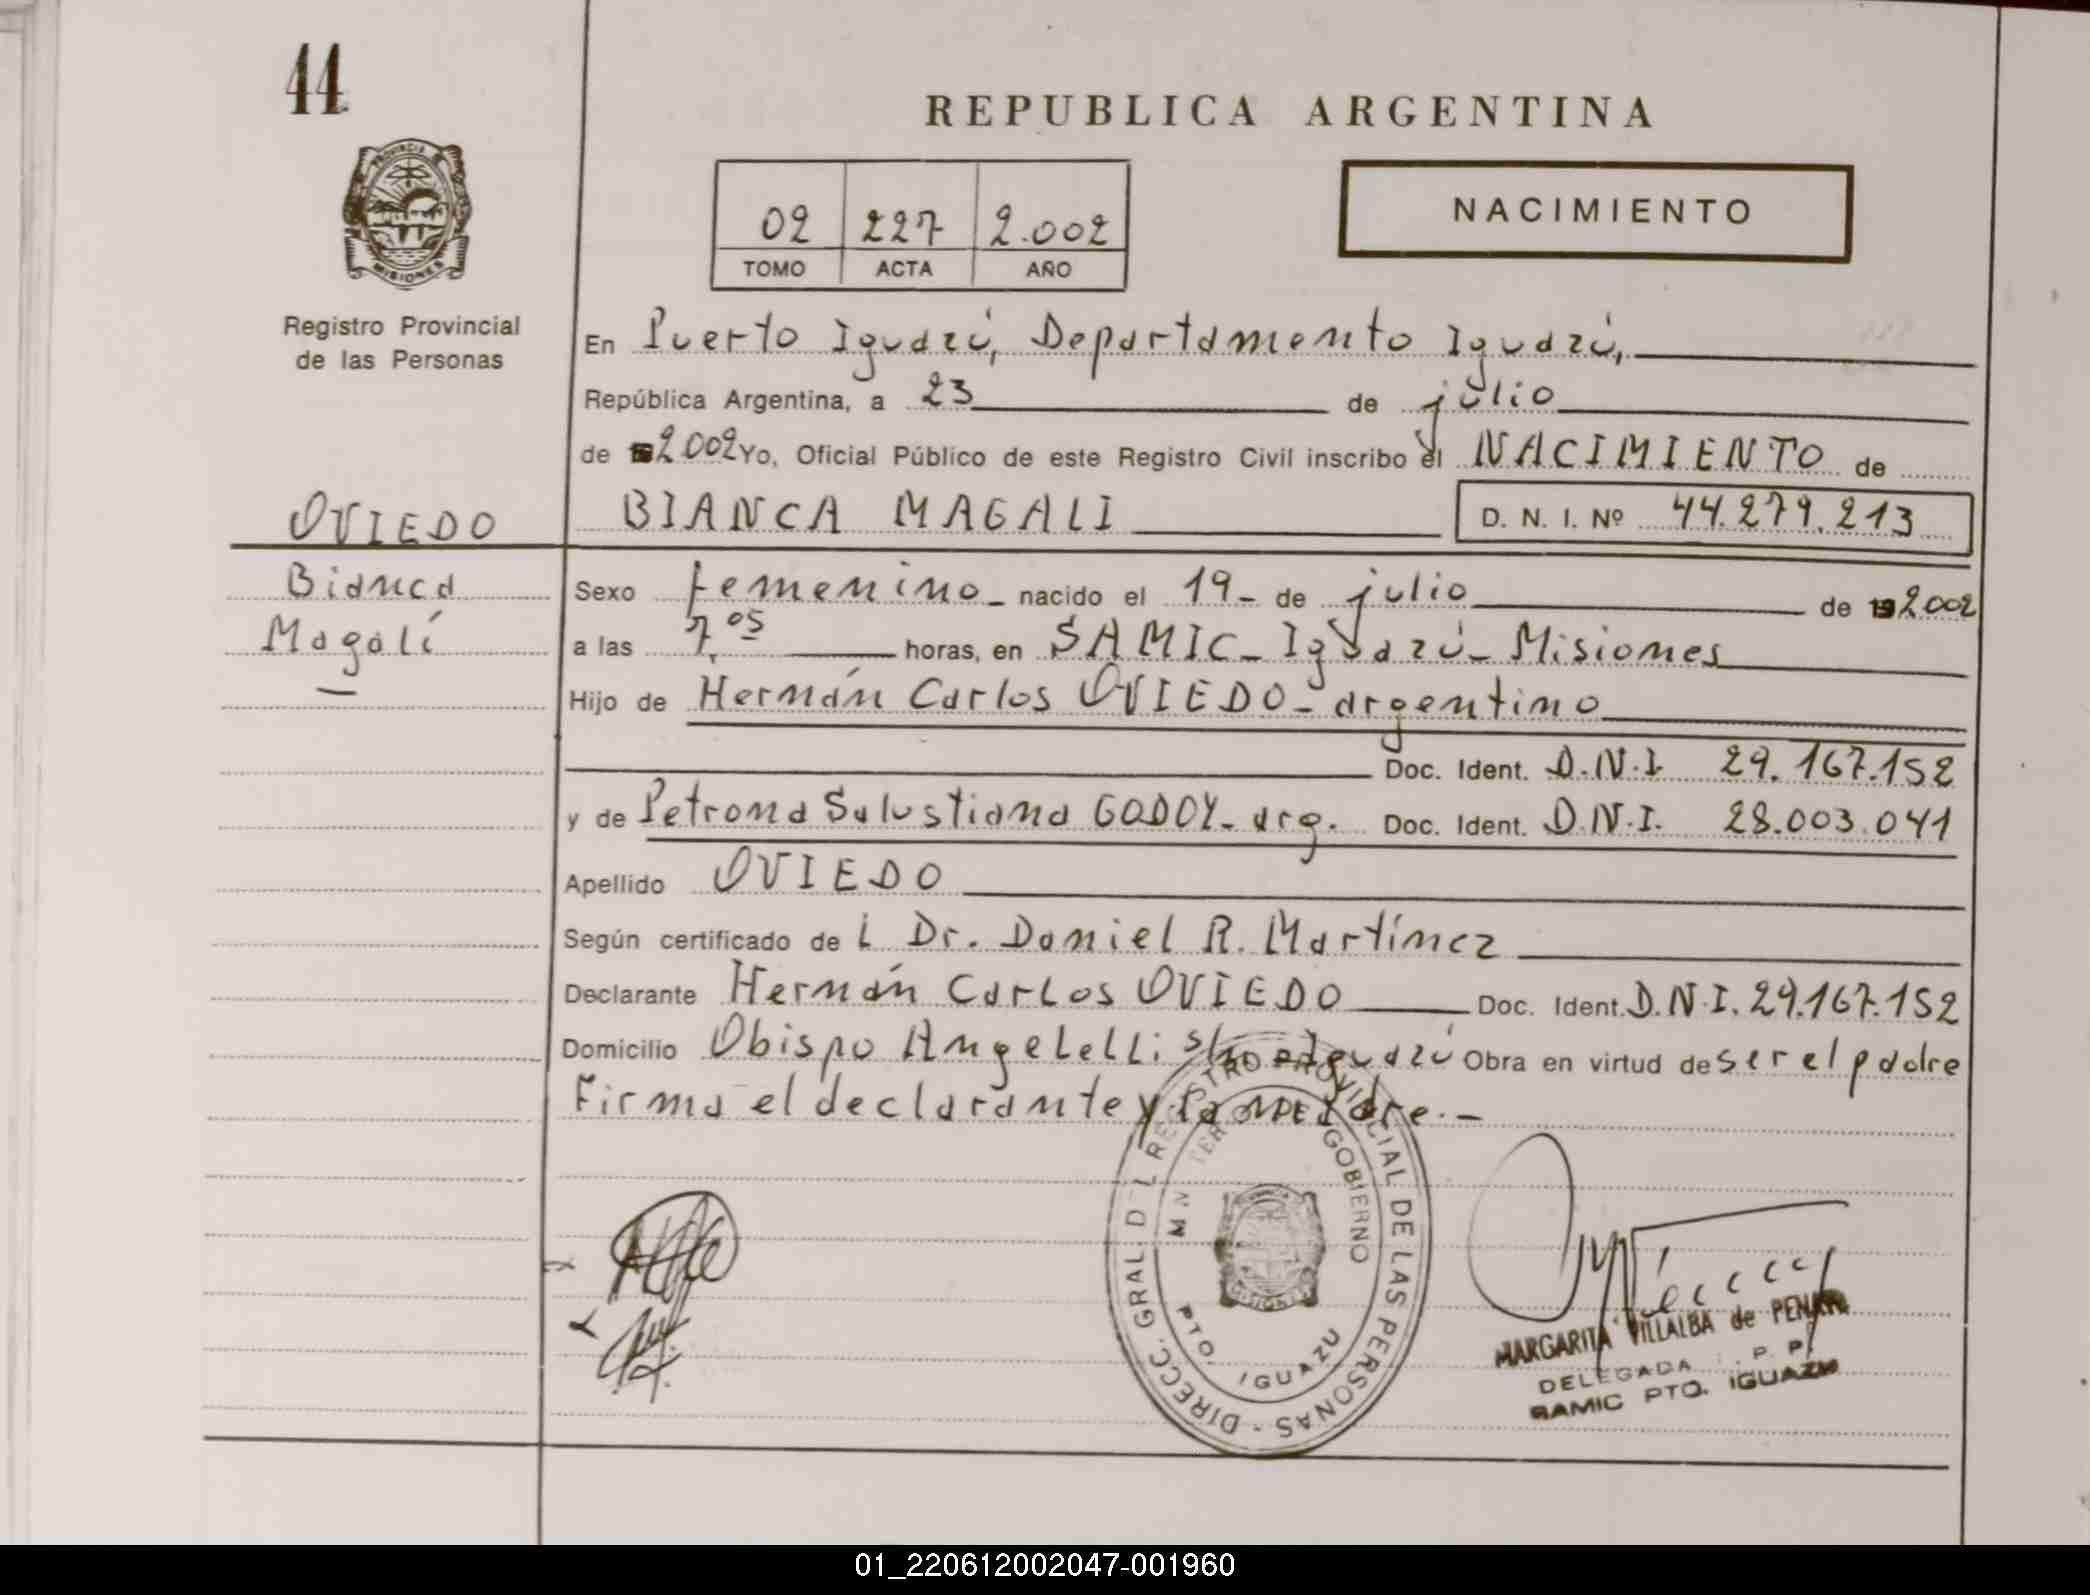 44
REPUBLICA ARGENTINA
PROVINCIA DE
MISIONES
NACIMIENTO
02 227 2.002
TOMO ACTA AÑO
Registro Provincial
de las Personas
En Puerto Iguazú, Departamento Iguazú,
República Argentina, a 23 de julio
de 2002 Yo, Oficial Público de este Registro Civil inscribo el NACIMIENTO de
OVIEDO BIANCA MAGALI D. N. I. Nº 44.279.213
Bianca Sexo femenino_ nacido el 19_ de julio de 19 2002
Magalí a las 7,05 horas, en SAMIC_ Iguazú_ Misiones
Hijo de Hernán Carlos OVIEDO_ argentino
Doc. Ident. D.N.I. 29.167.152
y de Petrona Salustiana GODOY_ arg. Doc. Ident. D.N.I. 28.003.041
Apellido OVIEDO
Según certificado de l Dr. Daniel R. Martínez
Declarante Hernán Carlos OVIEDO Doc. Ident. D.N.I. 29.167.152
Domicilio Obispo Angelelli s/nº Iguazú Obra en virtud de ser el padre
Firma el declarante y la madre.-
DIRECC. GRAL. DEL REGISTRO PROVINCIAL DE LAS PERSONAS -
MIN TERIO DE GOBIERNO
MISIONES
PTO. IGUAZU
MARGARITA VILLALBA de PENA
DELEGADA P. P.
SAMIC PTO. IGUAZU
01_220612002047-001960